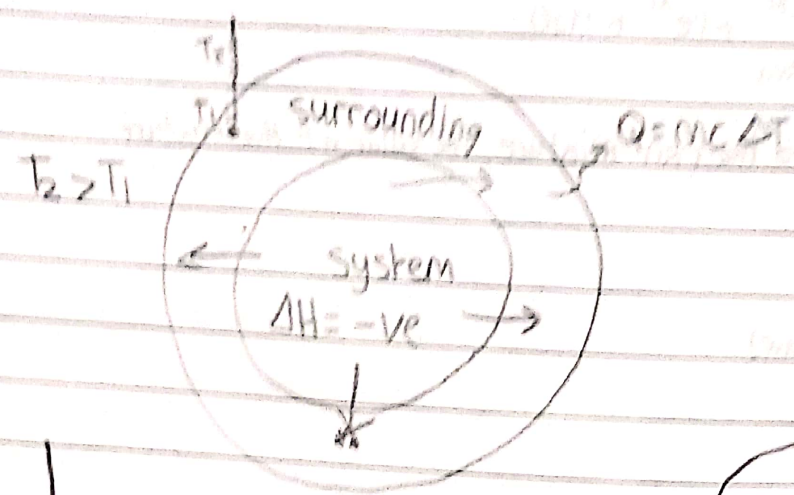 T₂
T₁
surrounding
Q = mc ΔT
T₂ > T₁
system
ΔH = -ve